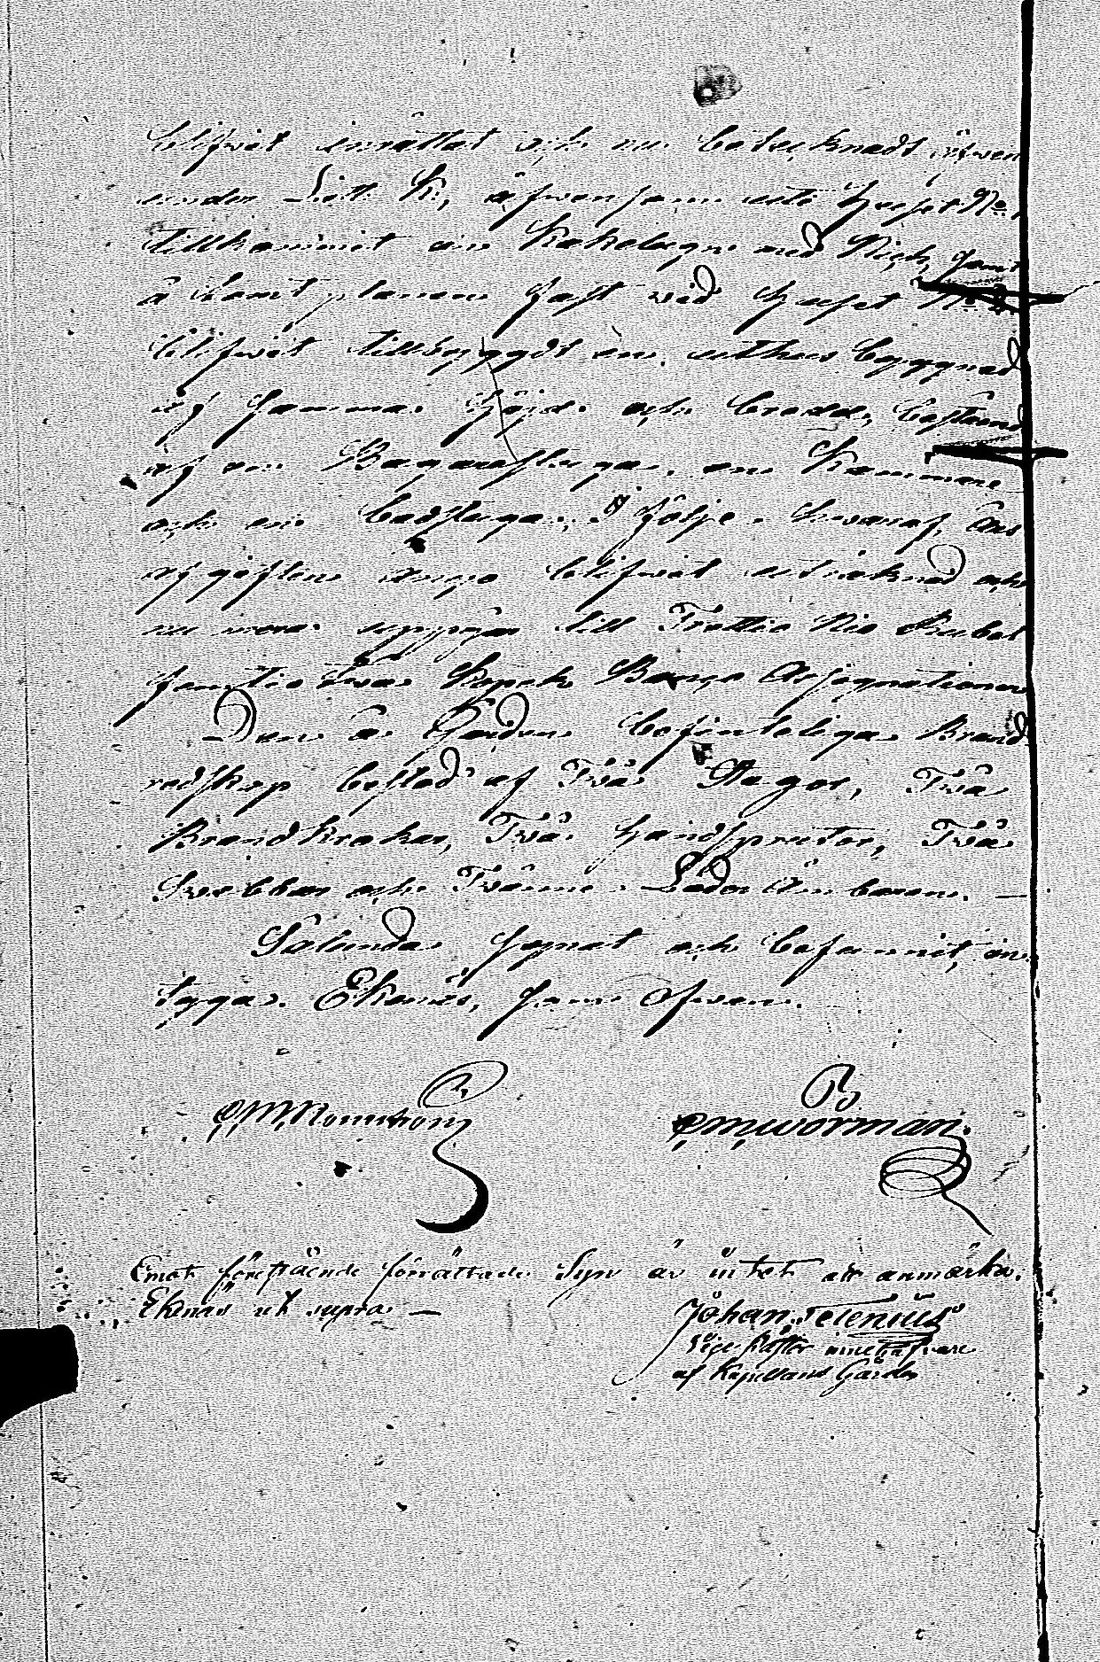 blifvit inrättat och nu betecknadt äfven
under Litt. K, äfvensom uti Huset No
tillkommit en Kakelugn med Rich, samt
å Tomtplanen fast vid Huset
blifvit tillbyggdt en uthus byggnad
af samma höjd och bredd, bestående
af en Bagarestuga, en Kammare
och en badstuga, I följe hvaraf, Års
afgiften ånyo blifvit uträknad och
nu mera uppgår till Trettio Nio Rubel
femtio två Kopek Banco Assignationer
Den å Gården befinteliga Brand
redskap bestod af Två Stegar, Två
Brandkrokar, Två Handsprutor, Två
Svabbar och Tvänne Läder Ämbaren. —
Sålunda synat och befunnit, in-
tygas. Ekenäs, som ofvan.
Emot förestående förrättade Syn är intet att anmärka.
Ekenäs ut supra —
Johan Telenius
Vice Pastor innehafvare
af Kapellans Gården